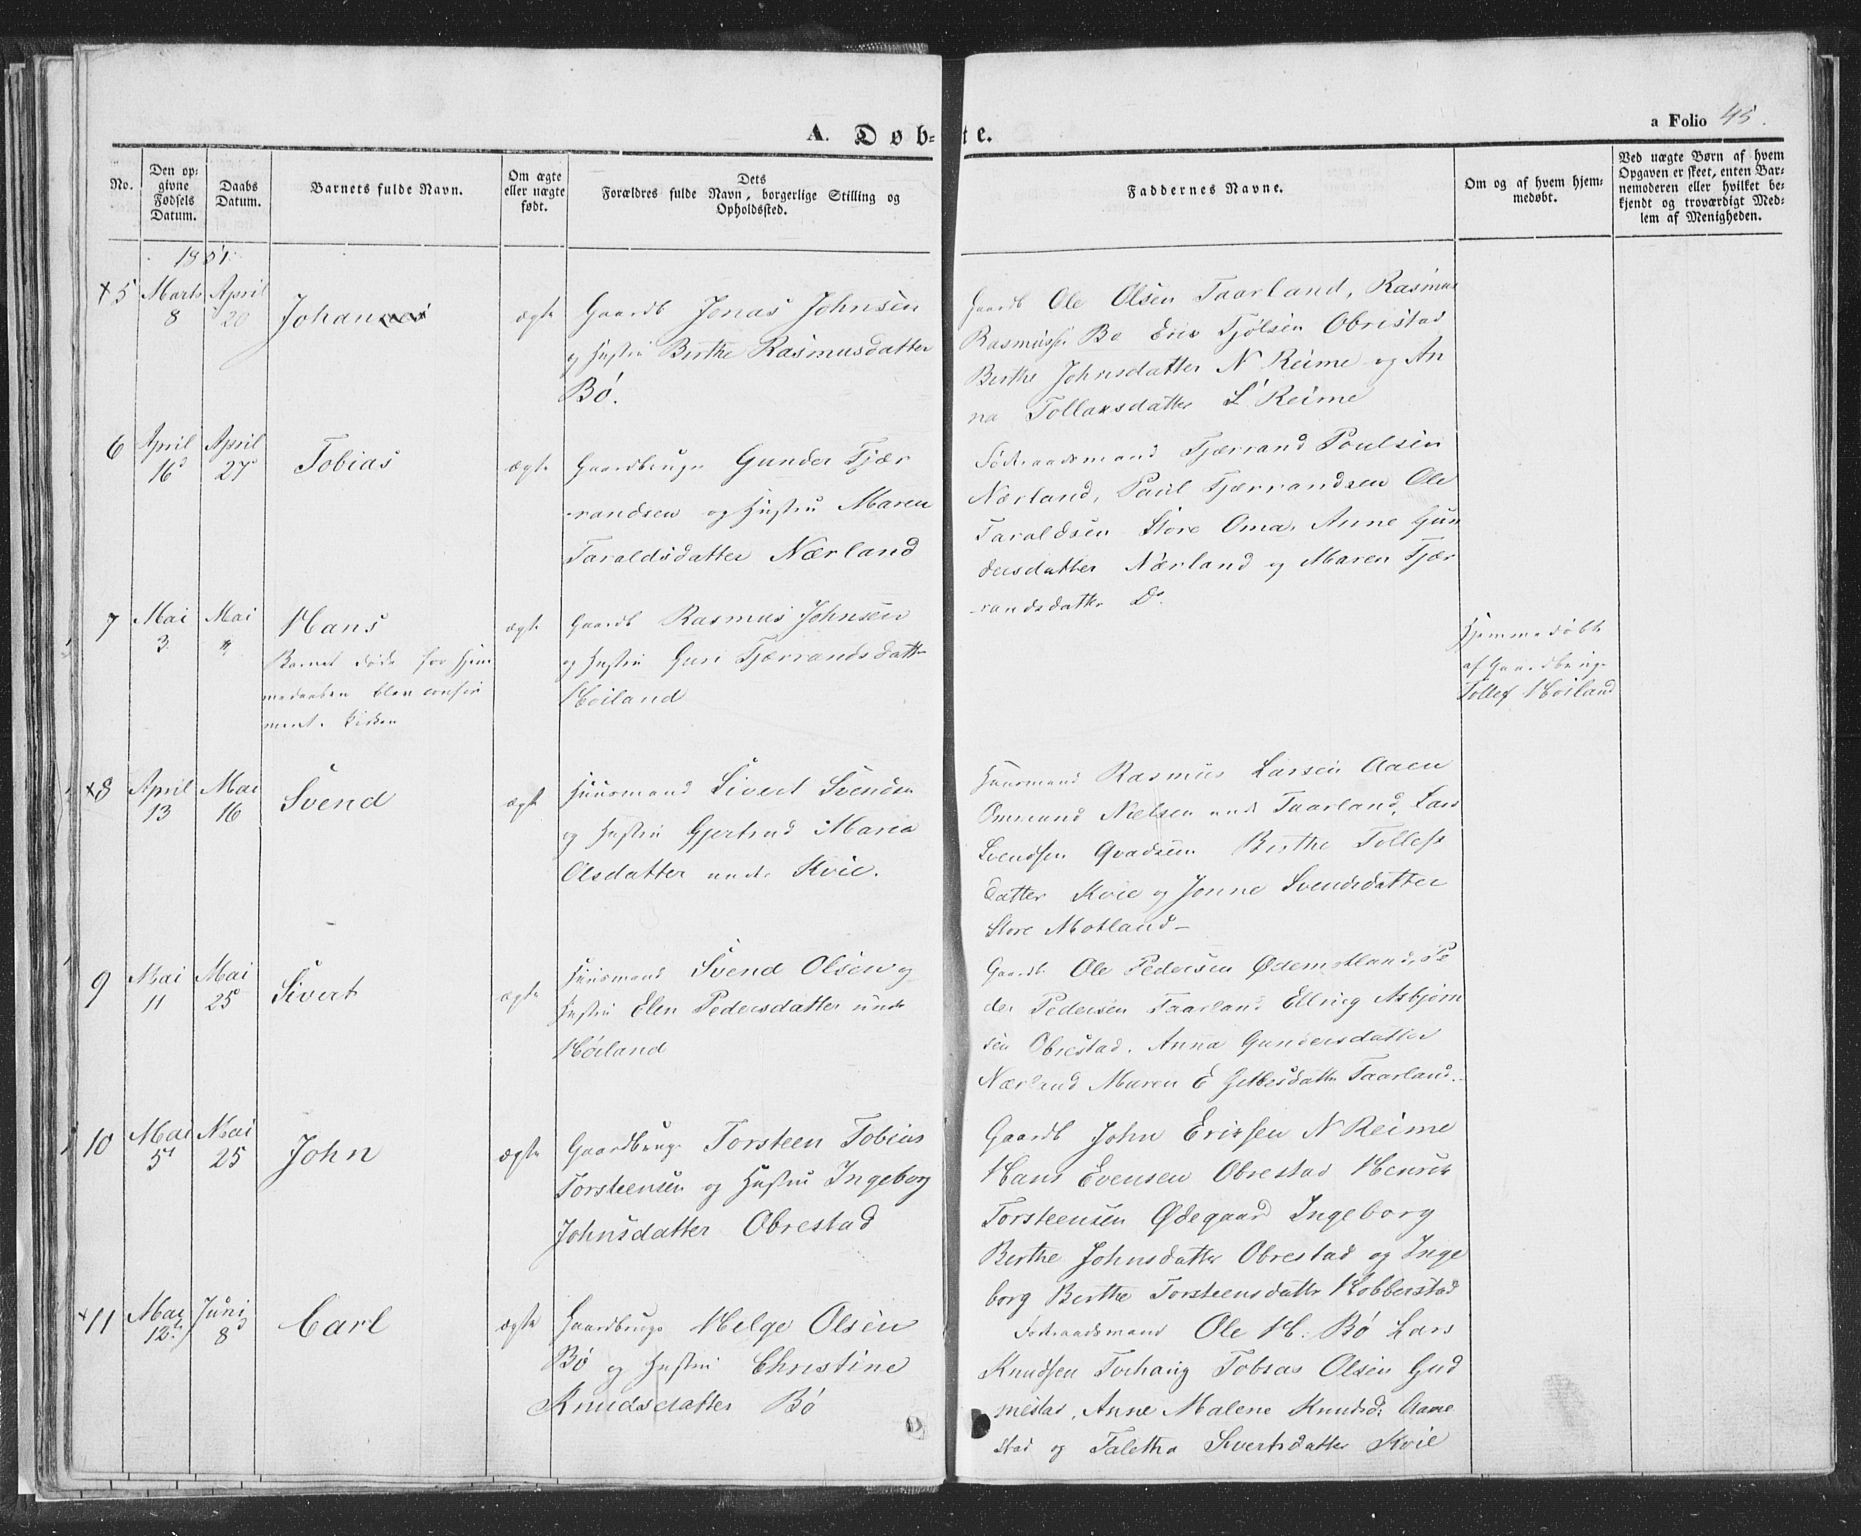 A. Døb-te.
a Folio 45.
No.
Den opgivne Fødsels Datum.
Daabs Datum.
Barnets fulde Navn.
Om ægte eller uægte født.
Forældres fulde Navn, borgerlige Stilling og Dets Opholdssted.
Faddernes Navne.
Om og af hvem hjemmedøbt.
Ved uægte Børn af hvem Opgaven er skeet, enten Barnemoderen eller hvilket bekjendt og troværdigt Medlem af Menigheden.
1851
×5 Marts 8 April 20 Johannes ægte
Gaardb Jonas Johnsen
og Hustru Berthe Rasmusdatter
Bø.
Gaardb Ole Olsen Taarland, Rasmus
Rasmussen Bø Eric Tjølsen Obrestad
Berthe Johnsdatter N Reime og An
na Tollaxsdatter L Reime
6 April 16 April 27 Tobias ægte
Gaardbruger Gunder Tjær
randsen og Hustru Maren
Taraldsdatter Nærland
Tjærrand Poulsen
Nærland, Paul Tjærrandsen Ole
Taraldsen Store Oma, Anne Gun
dersdatter Nærland og Maren Tjær
randsdatter Do
7 Mai 3 Mai " Hans ægte
Barnet døde før Hjem
medaaben blev confir
meret i Kirken
Gaardb Rasmus Johnsen
og Hustru Guri Tjærrandsdatter
Høiland
Hjemmedøbt
af Gaardbruger
Tollef Høiland
×8 April 13 Mai 16 Svend ægte
Huusmand Sivert Svendsen
og Hustru Gjertrud Maria
Olsdatter under Kvie.
Huusmand Rasmus Larsen Aaen
Ommund Nielsen under Taarland, Lars
Svendsen Qvadsem Berthe Tollefs
datter Kvie og Jonne Svendsdatter
Store Motland-
9 Mai 11 Mai 25 Sivert ægte
Huusmand Svend Olsen og
Hustru Elen Pedersdatter under
Høiland
Gaardb Ole Pedersen Ødemotland, Pe
der Pedersen Taarland Elling Asbjørn
sen Obrestad. Anna Gundersdatter
Nærland Maren E Taarland.
10 Mai 5 Mai 25 John ægte
Gaardbruger Torsteen Tobias
Torsteensen og Hustru Ingeborg
Johnsdatter Obrestad
Gaardb John Ericsen N Reime
Hans Evensen Obrestad Henrik
Torsteensen Ødegaard Ingeborg
Berthe Johnsdatter Obrestad og Inge
borg Berthe Torsteensdatter Hobberstad
×11 Mai 12 Juni 8 Carl ægte
Gaardbruger Helge Olsen
Bø og Hustru Christine
Knudsdatter Bø
Ole H. Bø Lars
Knudsen Torhaug Tobias Olsen Gud
mestad, Anne Malene Knudsd. Aane
stad og Taletha Sivertsdatter Kvie